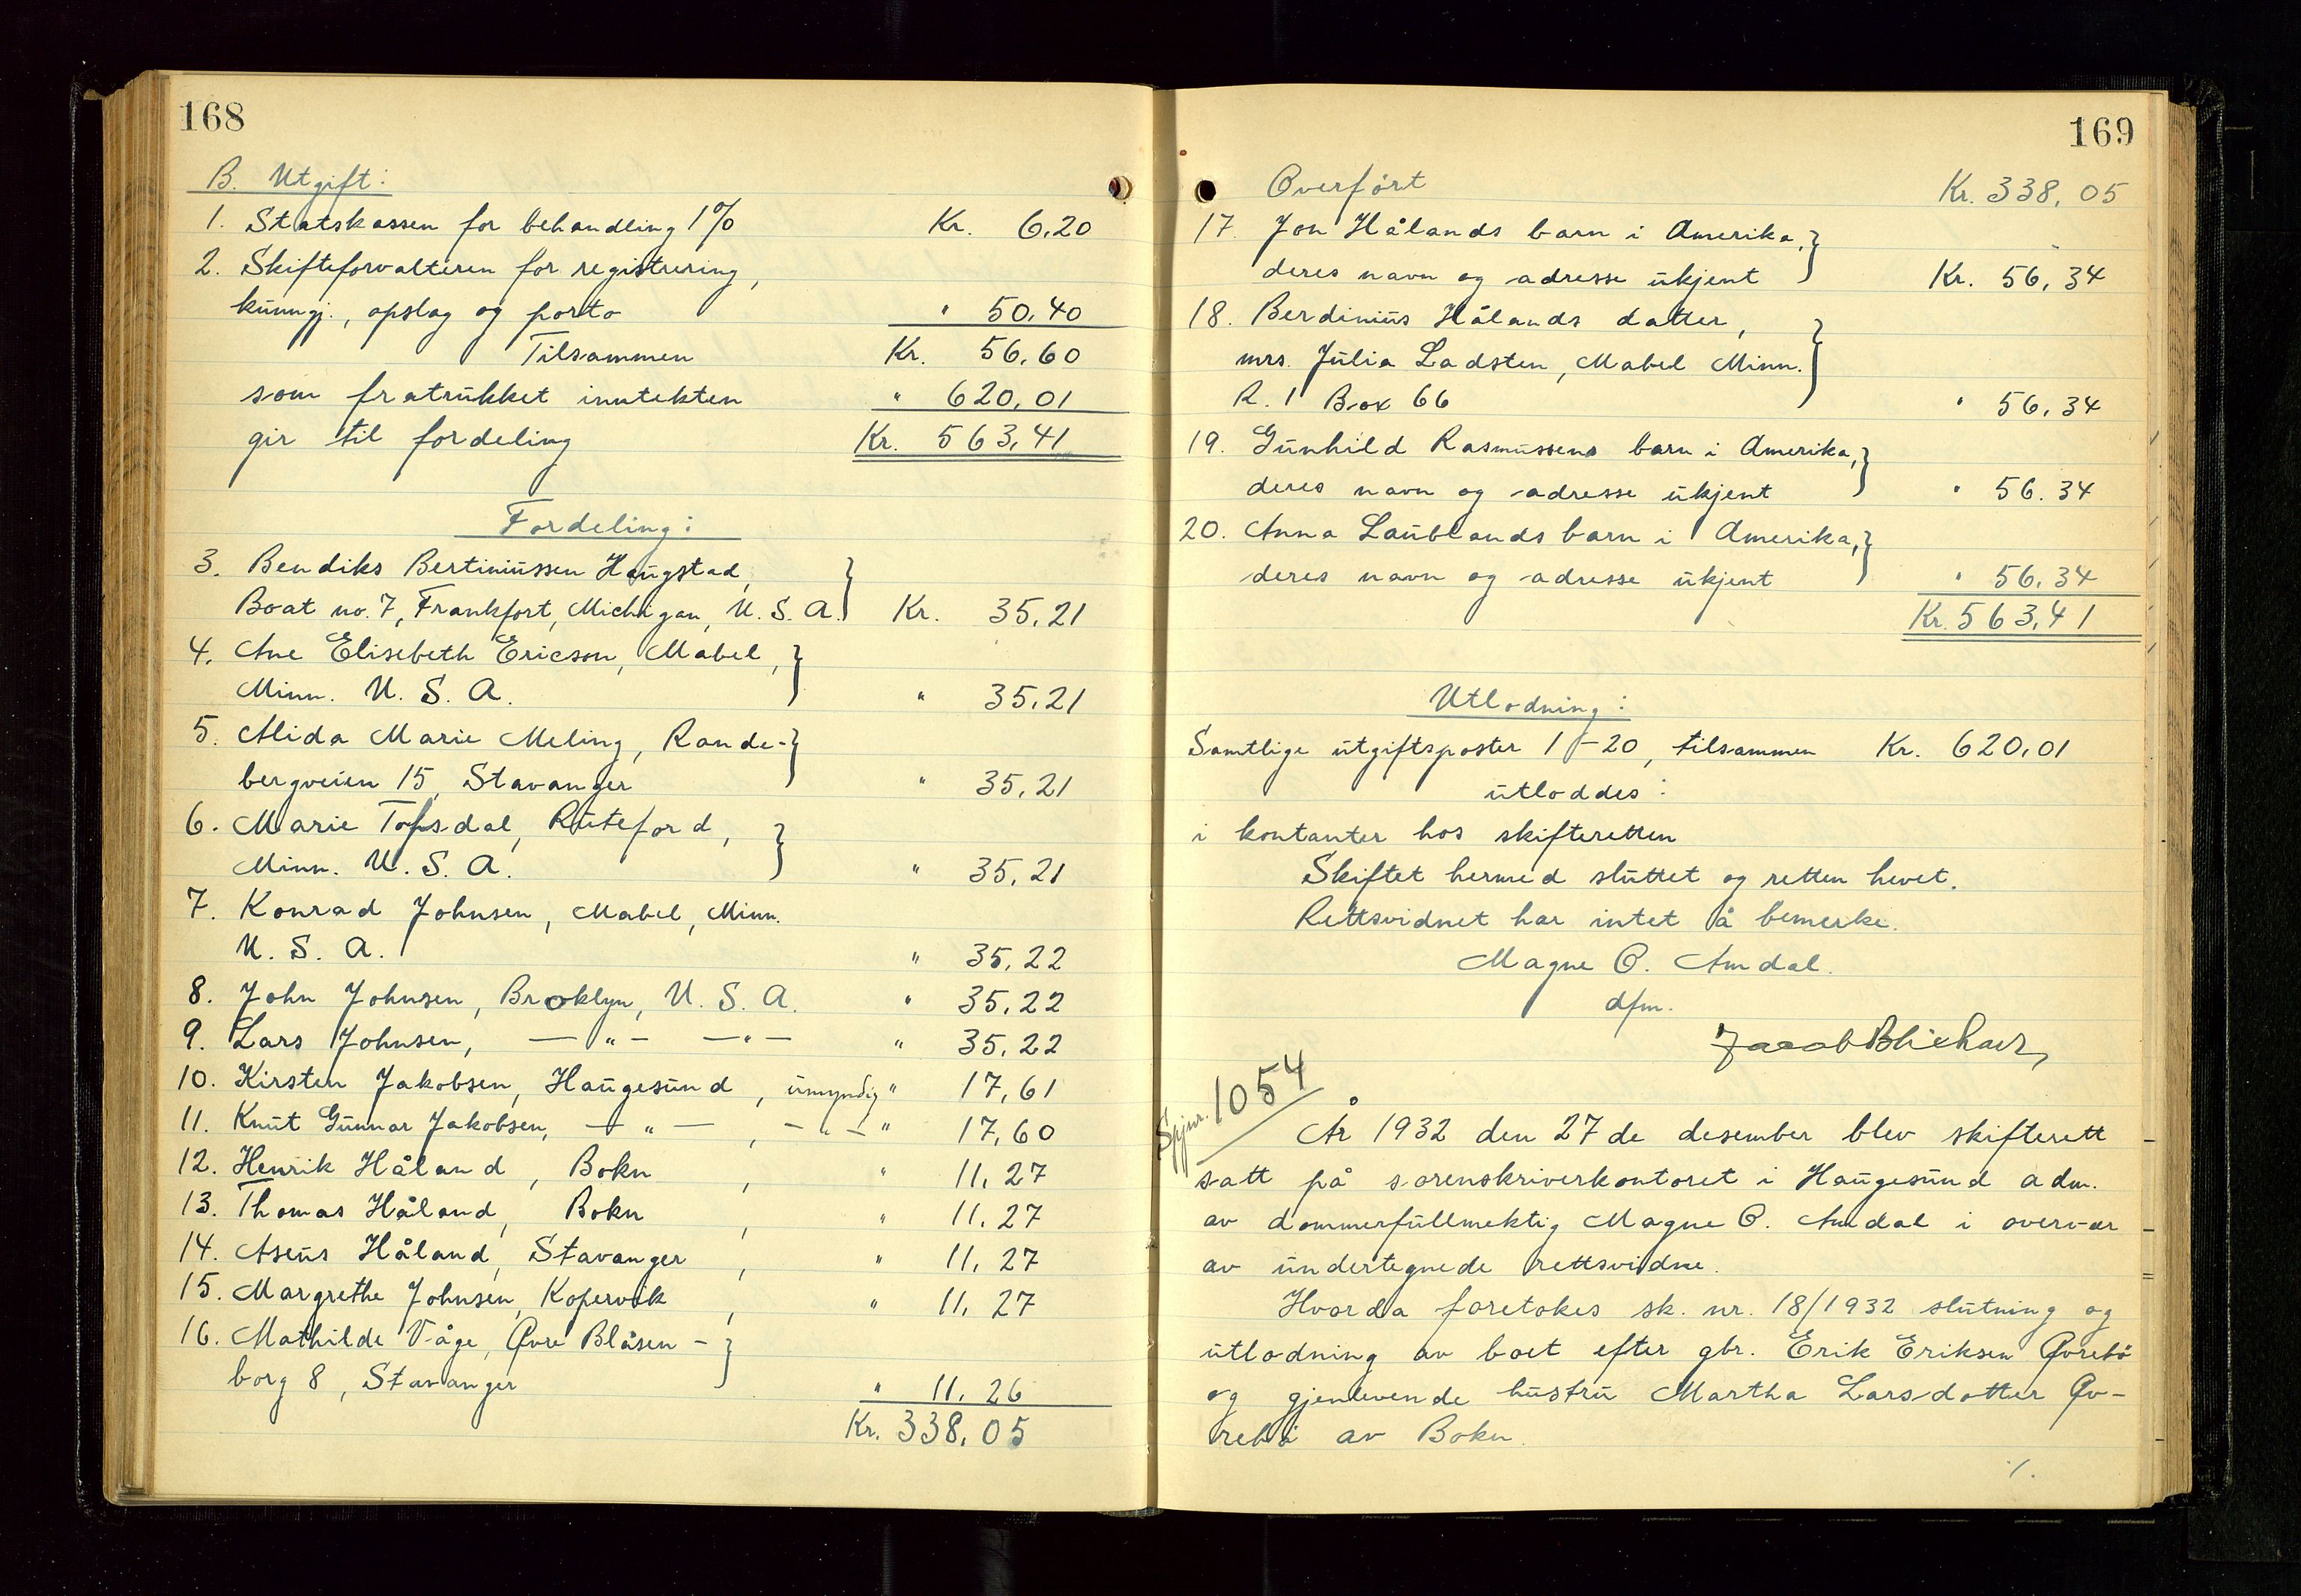 168
B. Utgift:
1. Statskassen for behandling 1% Kr. 6,20
2. Skifteforvalteren for registrering,
kunngj., opslag og porto " 50,40
Tilsammen Kr. 56,60
som fratrukket inntekten " 620,01
gir til fordeling Kr. 563,41
Fordeling:
3. Bendiks Bertiniussen Haugstad,
Boat no. 7, Frankfort, Michigan, U. S. A. Kr. 35,21
4. Ane Elisebeth Ericson, Mabel,
Minn. U. S. A. " 35,21
5. Alida Marie Meling, Rande-
bergveien 15, Stavanger " 35,21
6. Marie Tofsdal, Ruteford,
Minn. U. S. A. " 35,21
7. Konrad Johnsen, Mabel, Minn.
U. S. A. " 35,22
8. John Johnsen, Brooklyn, U. S. A. " 35,22
9. Lars Johnsen, — " — — " — " 35,22
10. Kirsten Jakobsen, Haugesund, umyndig " 17,61
11. Knut Gunnar Jakobsen, — " — , — " — " 17,60
12. Henrik Håland, Bokn , " 11,27
13. Thomas Håland, Bokn , " 11,27
14. Aseus Håland, Stavanger , " 11,27
15. Margrethe Johnsen, Kopervik , " 11,27
16. Mathilde Våge, Øvre Blåsen-
borg 8, Stavanger " 11,26
Kr. 338,05
169
Overført Kr. 338,05
17. Jon Hålands barn i Amerika,
deres navn og adresse ukjent Kr. 56,34
18. Berdinius Hålands datter,
mrs. Julia Ladsten, Mabel Minn.
R. 1 Box 66 " 56,34
19. Gunhild Rasmussens barn i Amerika,
deres navn og adresse ukjent " 56.34
20. Anna Laublands barn i Amerika,
deres navn og adresse ukjent " 56,34
Kr. 563,41
Utlodning:
Samtlige utgiftsposter 1-20, tilsammen Kr. 620,01
utloddes:
i kontanter hos skifteretten
Skiftet hermed sluttet og retten hevet.
Rettsvidnet har intet å bemerke.
Magne O. Amdal.
dfm.
Jacob
1054
År 1932 den 27de desember blev skifterett
satt på sorenskriverkontoret i Haugesund adm.
av dommerfullmektig Magne O. Amdal i overvær
av undertegnede rettsvidne.
Hvorda foretokes sk. nr. 18/1932 slutning og
utlodning av boet efter gbr. Erik Eriksen Øvrebö
og gjenlevende hustru Martha Larsdatter Øv-
rebö av Bokn.
./.